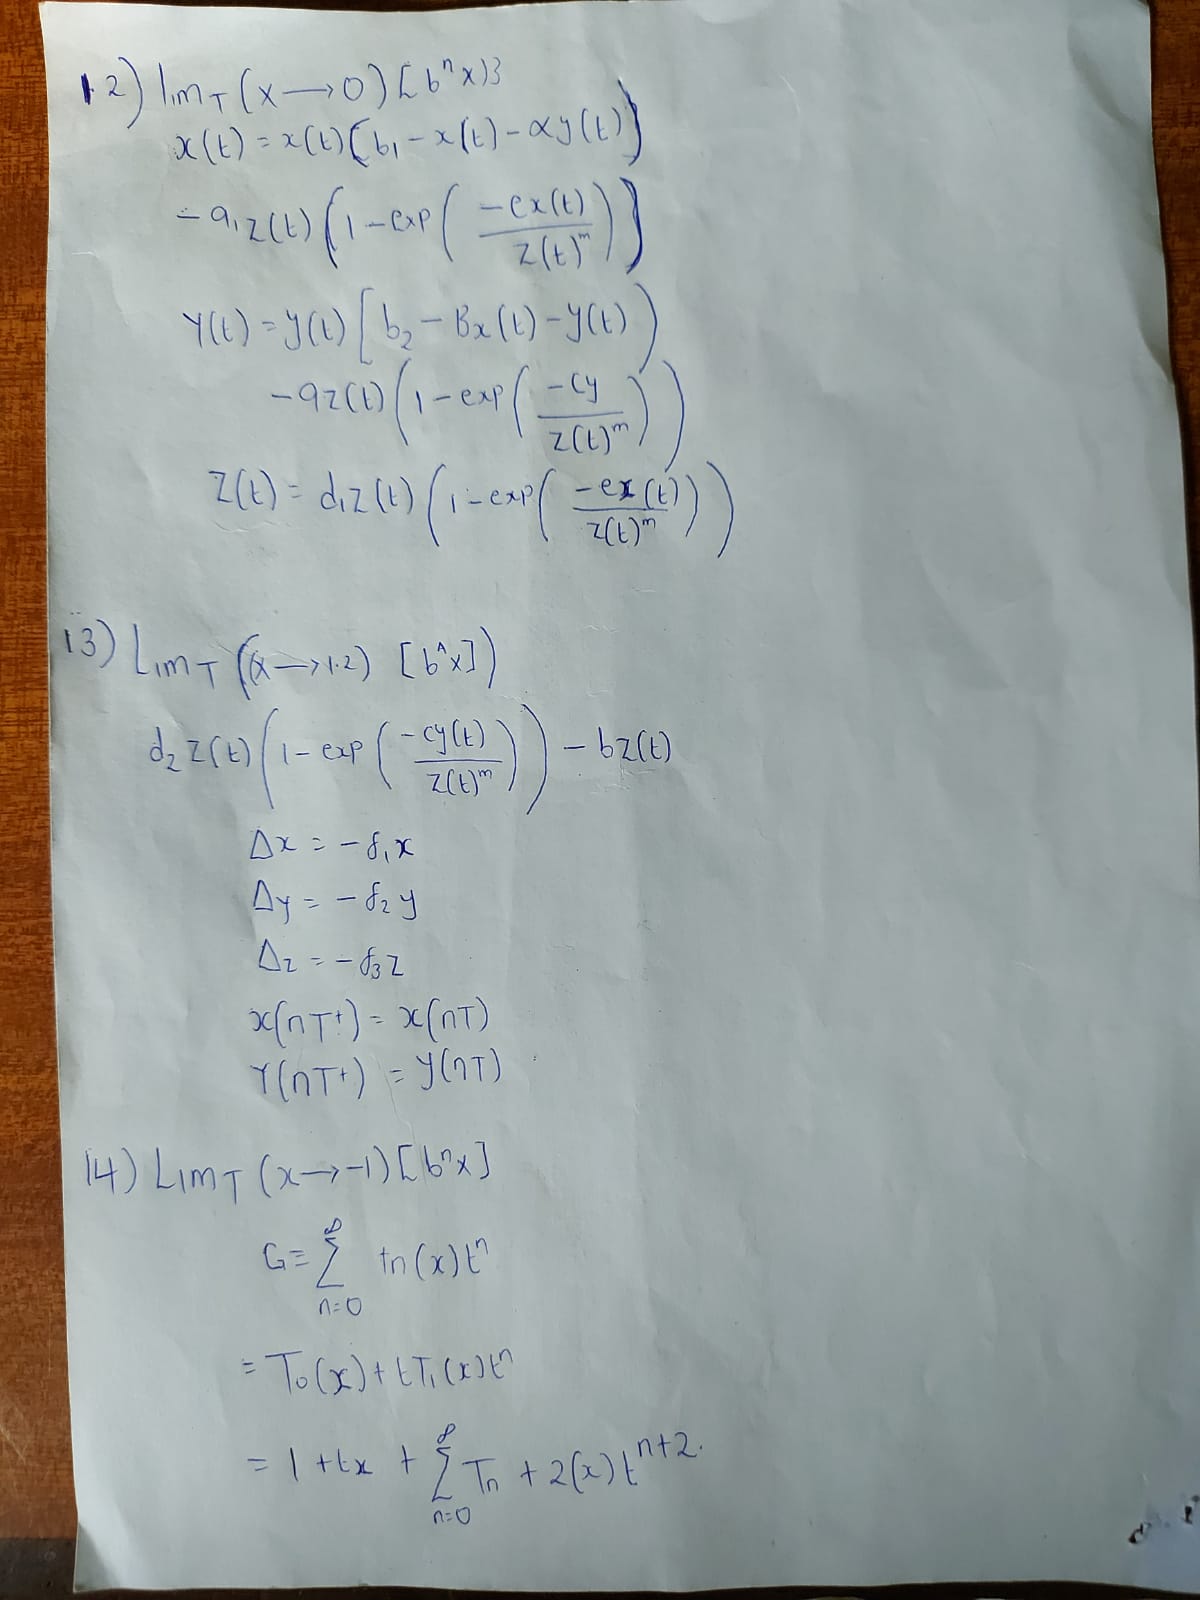 12) lim_T (x→0) [b^n x)3
x(t) = x(t) [b₁ - x(t) - αy(t)]
- a₁z(t) (1 - exp (-ex(t) / z(t)^m))
Y(t) = y(t) [b₂ - Bx(t) - y(t))
- az(t) (1 - exp (-cy / z(t)^m))
Z(t) = d₁z(t) (1 - exp (-ex(t) / z(t)^m))
13) Lim_T ((x→1.2) [b^x])
d₂z(t) (1 - exp (-cy(t) / z(t)^m)) - bz(t)
Δx = -δ₁x
Δy = -δ₂y
Δz = -δ₃z
x(nT⁺) = x(nT)
Y(nT⁺) = y(nT)
14) Lim_T (x→-1) [b^n x]
G = ∑_{n=0}^{∞} tn(x)t^n
= T₀(x) + tT₁(x)t^n
= 1 + tx + ∑_{n=0}^{∞} T_n + 2(x)t^{n+2}.